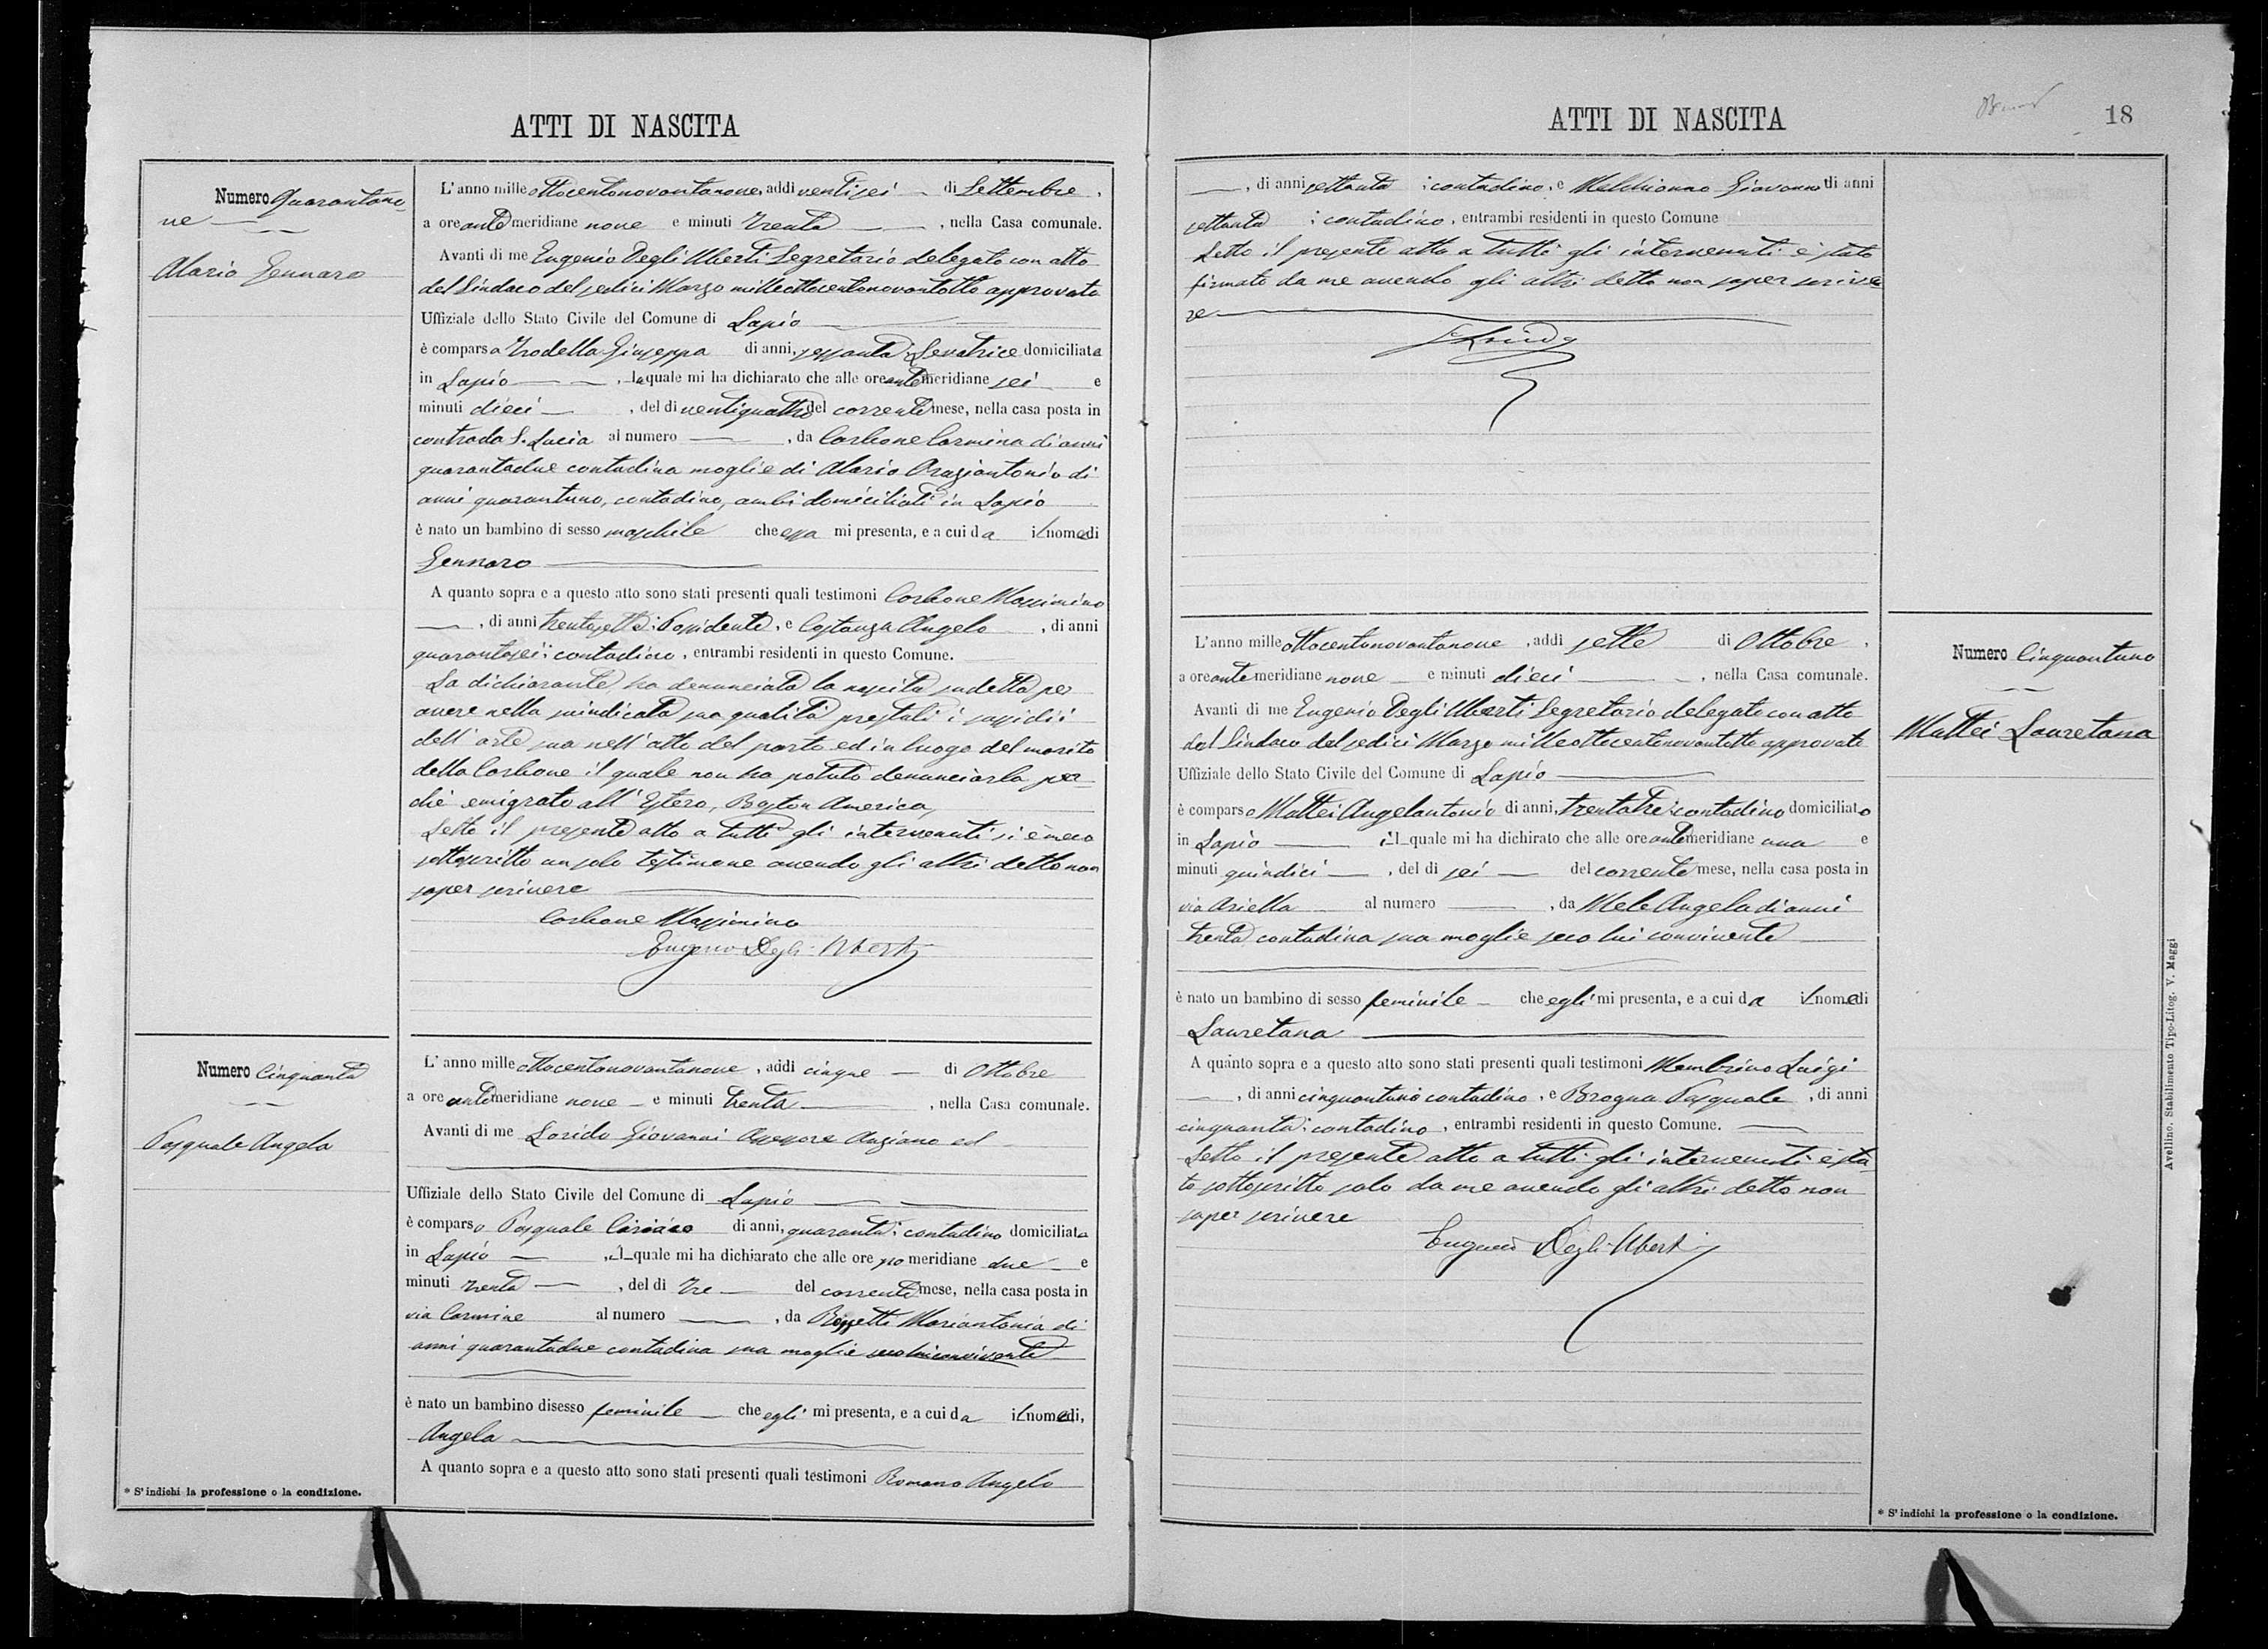 ATTI DI NASCITA
Numero Quarantano-
ve
Alario Gennaro
L'anno mille ottocentonovantanove, addì ventisei di Settembre,
a ore ante meridiane nove e minuti trenta, nella Casa comunale.
Avanti di me Eugenio Degli Uberti Segretario delegato con atto
del Sindaco del sedici Marzo milleottocentonovantotto approvato
Uffiziale dello Stato Civile del Comune di Lapio
è comparsa Trodella Giuseppa di anni, sessanta; Levatrice domiciliata
in Lapio, la quale mi ha dichiarato che alle ore ante meridiane sei e
minuti dieci, del dì ventiquattro del corrente mese, nella casa posta in
contrada S. Lucia al numero, da Carbone Carmina di anni
quarantadue contadina moglie di Alario Oraziantonio di
anni quarantuno, contadino, ambi domiciliati in Lapio
è nato un bambino di sesso maschile che essa mi presenta, e a cui da il nome di
Gennaro
A quanto sopra e a questo atto sono stati presenti quali testimoni Carbone Massimino
, di anni trentasette; Possidente, e Costanza Angelo, di anni
quarantasei; contadino, entrambi residenti in questo Comune.
La dichiarante, ha denunciata la nascita sudetta per
avere nella suindicata sua qualità prestati i sussidii
dell'arte sua nell'atto del parto ed in luogo del marito
della Carbone il quale non ha potuto denunciarla per-
chè emigrato all'Estero, Boston America,
Letto il presente atto a tutti gli intervenuti si è meco
sottoscritto un solo testimone avendo gli altri detto non
saper scrivere
Carbone Massimino
Eugenio Degli Uberti
Numero Cinquanta
Pasquale Angela
L'anno mille ottocentonovantanove, addì cinque di Ottobre
a ore ante meridiane nove e minuti trenta, nella Casa comunale.
Avanti di me Lorido Giovanni Assessore Anziano ed
Uffiziale dello Stato Civile del Comune di Lapio
è comparso Pasquale Ciriaco di anni, quaranta; contadino domiciliato
in Lapio, il quale mi ha dichiarato che alle ore po meridiane due e
minuti trenta, del dì tre del corrente mese, nella casa posta in
via Carmine al numero, da Rossetti Mariantonia di
anni quarantadue contadina sua moglie seco lui convivente
è nato un bambino di sesso feminile che egli mi presenta, e a cui da il nome di,
Angela
A quanto sopra e a questo atto sono stati presenti quali testimoni Romano Angelo
* S'indichi la professione o la condizione.
ATTI DI NASCITA
18
, di anni settanta; contadino, e Melchionno Giovanni di anni
settanta; contadino, entrambi residenti in questo Comune
Letto il presente atto a tutti gli intervenuti è stato
firmato da me avendo gli altri detto non saper scrive
re
Numero Cinquantuno
Mattei Lauretana
L'anno mille ottocentonovantanove, addì sette di Ottobre,
a ore ante meridiane nove e minuti dieci, nella Casa comunale.
Avanti di me Eugenio Degli Uberti Segretario delegato con atto
del Sindaco del sedici Marzo milleottocentonovantotto approvato
Uffiziale dello Stato Civile del Comune di Lapio
è comparso Mattei Angelantonio di anni, trentatre; contadino domiciliato
in Lapio il quale mi ha dichirato che alle ore ante meridiane una e
minuti quindici, del dì sei del corrente mese, nella casa posta in
via Ariella al numero, da Mele Angela di anni
trenta, contadina sua moglie seco lui convivente
è nato un bambino di sesso feminile che egli mi presenta, e a cui da il nome di
Lauretana
A quanto sopra e a questo atto sono stati presenti quali testimoni Membrino Luigi
, di anni cinquantuno contadino, e Brogna Pasquale, di anni
cinquanta; contadino, entrambi residenti in questo Comune.
Letto il presente atto a tutti gli intervenuti è sta
to sottoscritto solo da me avendo gli altri detto non
saper scrivere
Eugenio Degli Uberti
* S'indichi la professione o la condizione.
Avellino. Stabilimento Tipo-Litog. V. Maggi